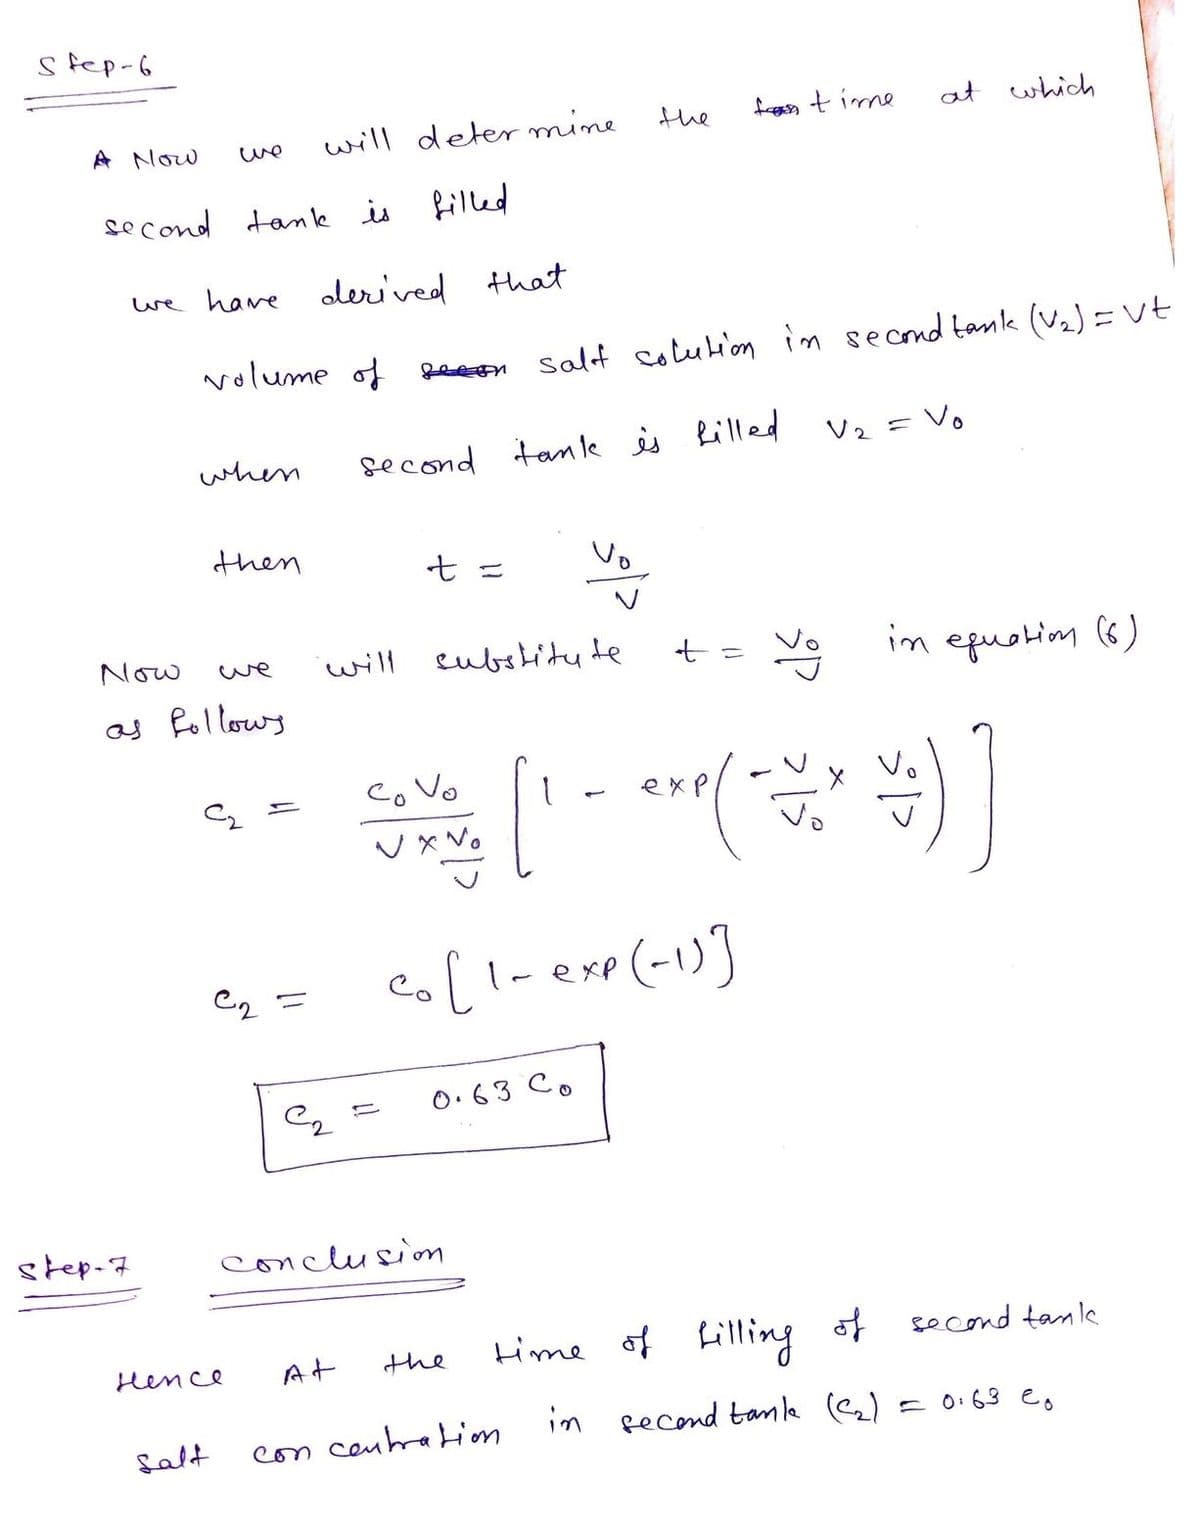 Step-6
Now we will determine the time at which
second tank is filled
we have derived that
volume of salt solution in second tank (V₂) = Vt
when second tank is filled V₂ = V₀
then t = V₀/V
Now we will substitute t = V₀/V in equation (6)
as follows
C₂ = C₀V₀/(V × V₀/V) [1 - exp(-V/V₀ × V₀/V)]
C₂ = C₀[1 - exp(-1)]
C₂ = 0.63 C₀
Step-7 Conclusion
Hence At the time of filling of second tank
salt concentration in second tank (C₂) = 0.63 C₀